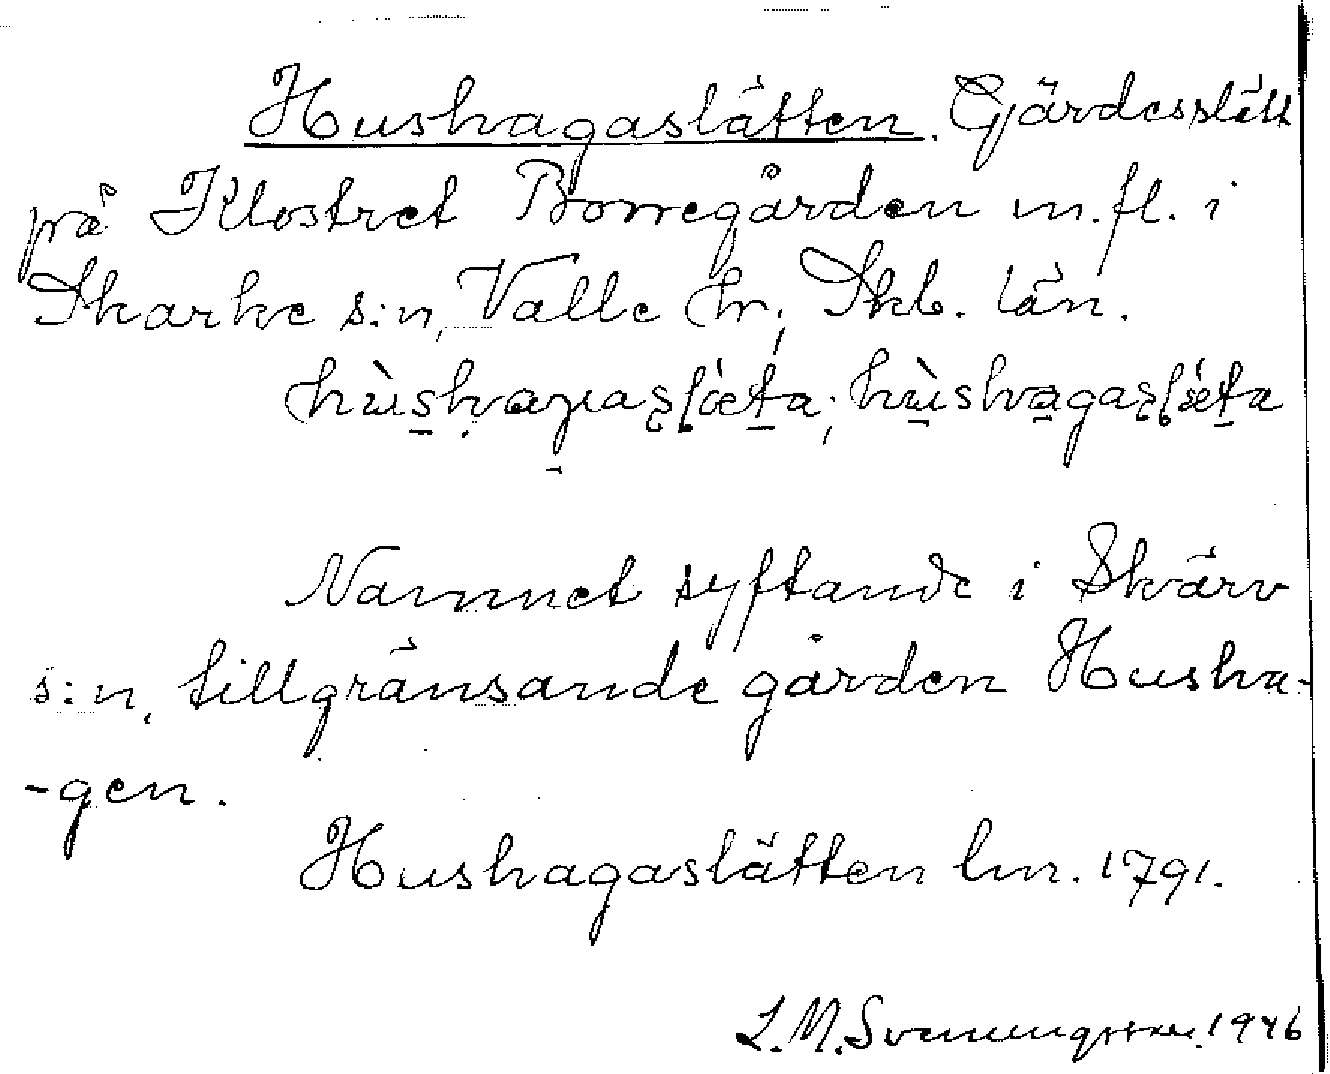 Hushagaslätten. Gärdesslätt
på Klostret Borregården m.fl. i
Skarke s:n, Valle hr, Skb. län.
Namnet syftande i Skärv
s:n, tillgränsande gården Husha-
-gen.
Hushagaslätten lm. 1791.
L. M. Svenungsson 1946